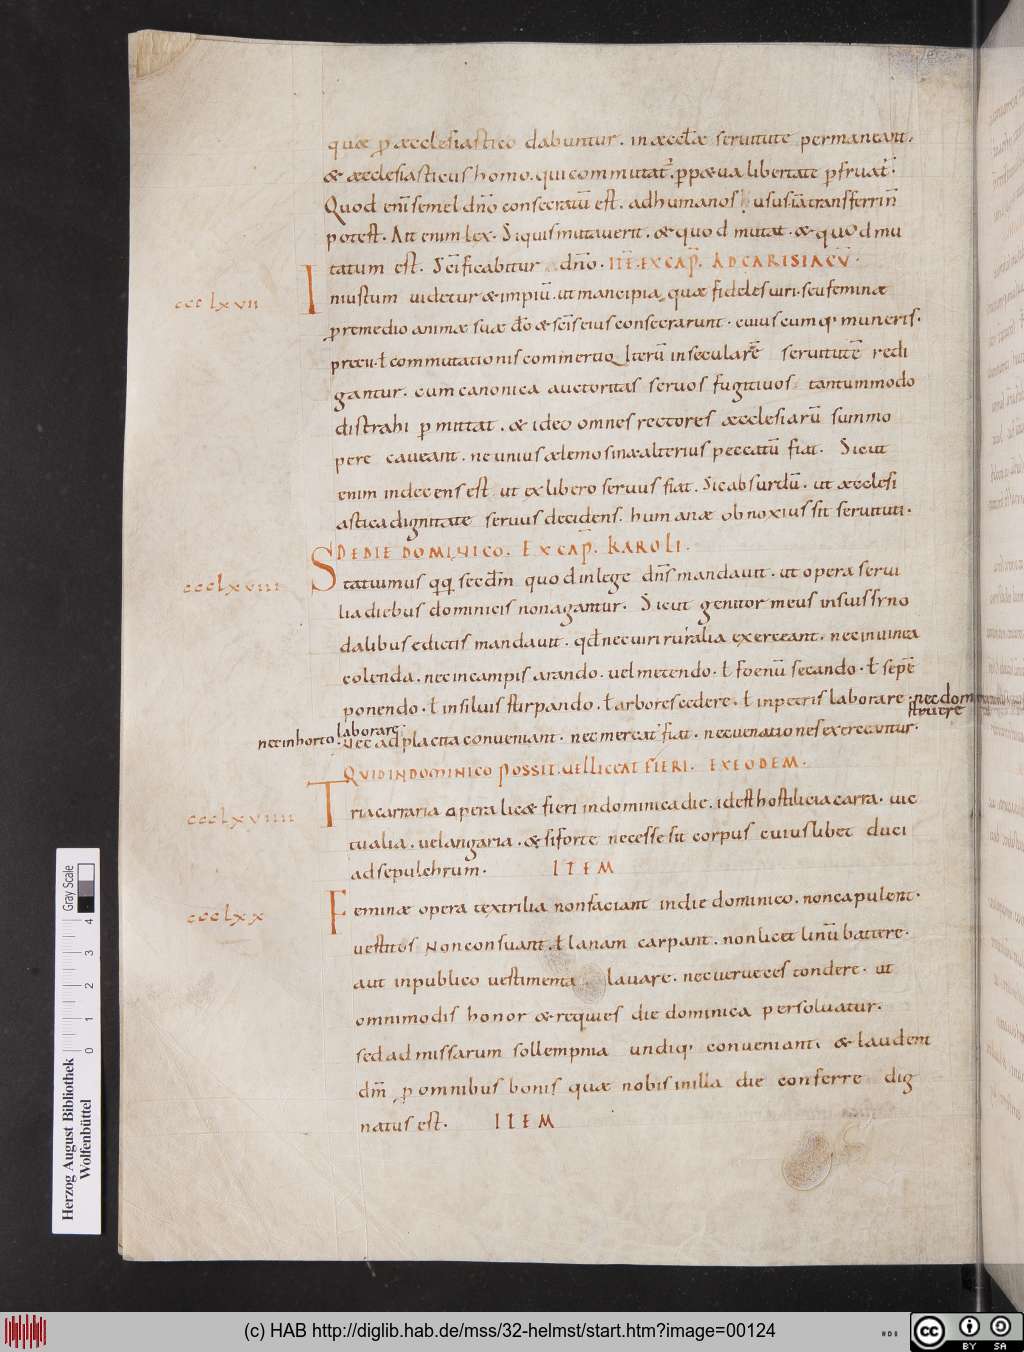 quæ p æcclesiastico dabuntur. in æccłæ seruitute permaneant.
& æcclesiasticus homo. qui commutat. ppetua libertate pfruat.
Quod eni semel dño consecratū est. ad humanos usus iā transferri ñ
potest. Ait enim lex. Siquis mutauerit. & quod mutat. & quod mu
tatum est. Scificabitur dño. ITĒ. EX CAP. AD CARISIACŪ.
ccclxvii
Iniustum uidetur & impiū. ut mancipia, quæ fideles uiri. seu feminæ
p remedio animæ suæ dō & scis eius consecrarunt. cuiuscumq; muneris.
precii. ł commutationis commertio iterū in seculare seruitute redi
gantur. cum canonica auctoritas seruos fugitiuos tantummodo
distrahi pmittat. & ideo omnes rectores æcclesiarū summo
pere caueant. ne unius ælemosina alterius peccatū fiat. Sicut
enim indecens est ut ex libero seruus fiat. Sic absurdū. ut æcclesi
astica dignitate seruus decidens. humanæ obnoxius sit seruituti.
DE DIE DOMINICO. EX CAP. KAROLI.
ccclxviii
Statuimus qq secdm quod in lege dñs mandauit. ut opera serui
lia diebus dominicis non agantur. Sicut genitor meus in suis syno
dalibus edictis mandauit. qd nec uiri ruralia exerceant. nec in uinea
colenda. nec in campis arando. uel metendo. ł foenū secando. ł sepē
ponendo. ł in siluis stirpando. ł arbores cedere. ł in petris laborare. nec domos
struere
nec in horto laborare.
nec ad placita conueniant. nec mercat fiat. nec uenationes exerceantur.
QUID IN DOMINICO POSSIT. UEL LICEAT FIERI. EX EODEM.
ccclxviiii
Tria carraria opera licæ fieri in dominica die. id est hostilicia carra. uic
tualia. uel angaria. & si forte necesse sit corpus cuiuslibet duci
ad sepulchrum. ITEM
ccclxx
Feminæ opera textrilia non faciant in die dominico. non capulent.
uestitos Non consuant. ł lanam carpant. non licet linū battere.
aut in publico uestimenta lauare. nec uerueces tondere. ut
omnimodis honor & requies die dominica persoluatur.
sed ad missarum sollempnia undiq; conueniant. & laudent
dm̄ p omnibus bonis quæ nobis in illa die conferre dig
natus est. ITEM
Herzog August Bibliothek
Wolfenbüttel
0 1 2 3 4
Gray Scale
(c) HAB http://diglib.hab.de/mss/32-helmst/start.htm?image=00124
cc BY SA